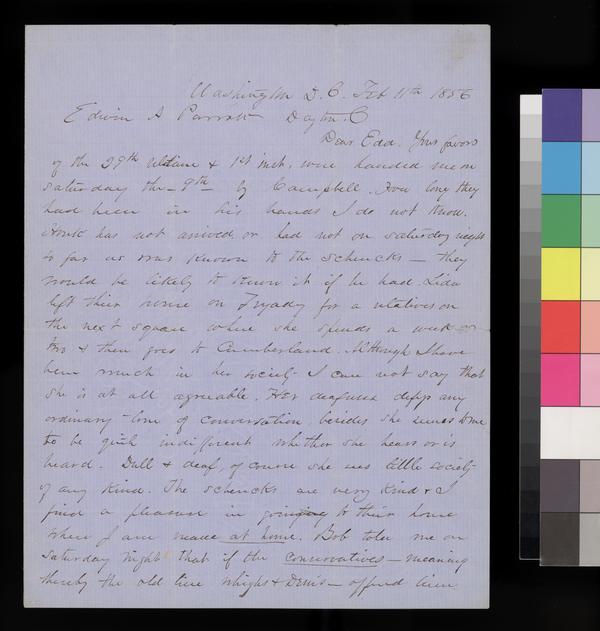 Washington D. C. Feb 11th 1856
Edwin A Parrott Dayton O
Dear Edd. Your favors
of the 29th ultimo & 1st inst, were handed me on
saturday the 9th by Campbell. How long they
had been in his hands I do not know.
Houk has not arrived or had not on saturday night
so far as was known to the schencks — they
would be likely to know it if he had. Lida
left their house on Fryday for a relatives on
the next square where she spends a week or
two & then goes to Cumberland. Although I have
been much in her society I can not say that
she is at all agreeable. Her deafness defys any
ordinary tone of conversation, besides she seems to me
to be quite indifferent whether she hears or is
heard. Dull & deaf, of course she sees little society
of any kind. The schencks are very kind & I
find a pleasure in going to their house
where I am made at home. Bob told me on
saturday night that if the conservatives — meaning
thereby the old line Whigs & Dems — offered him